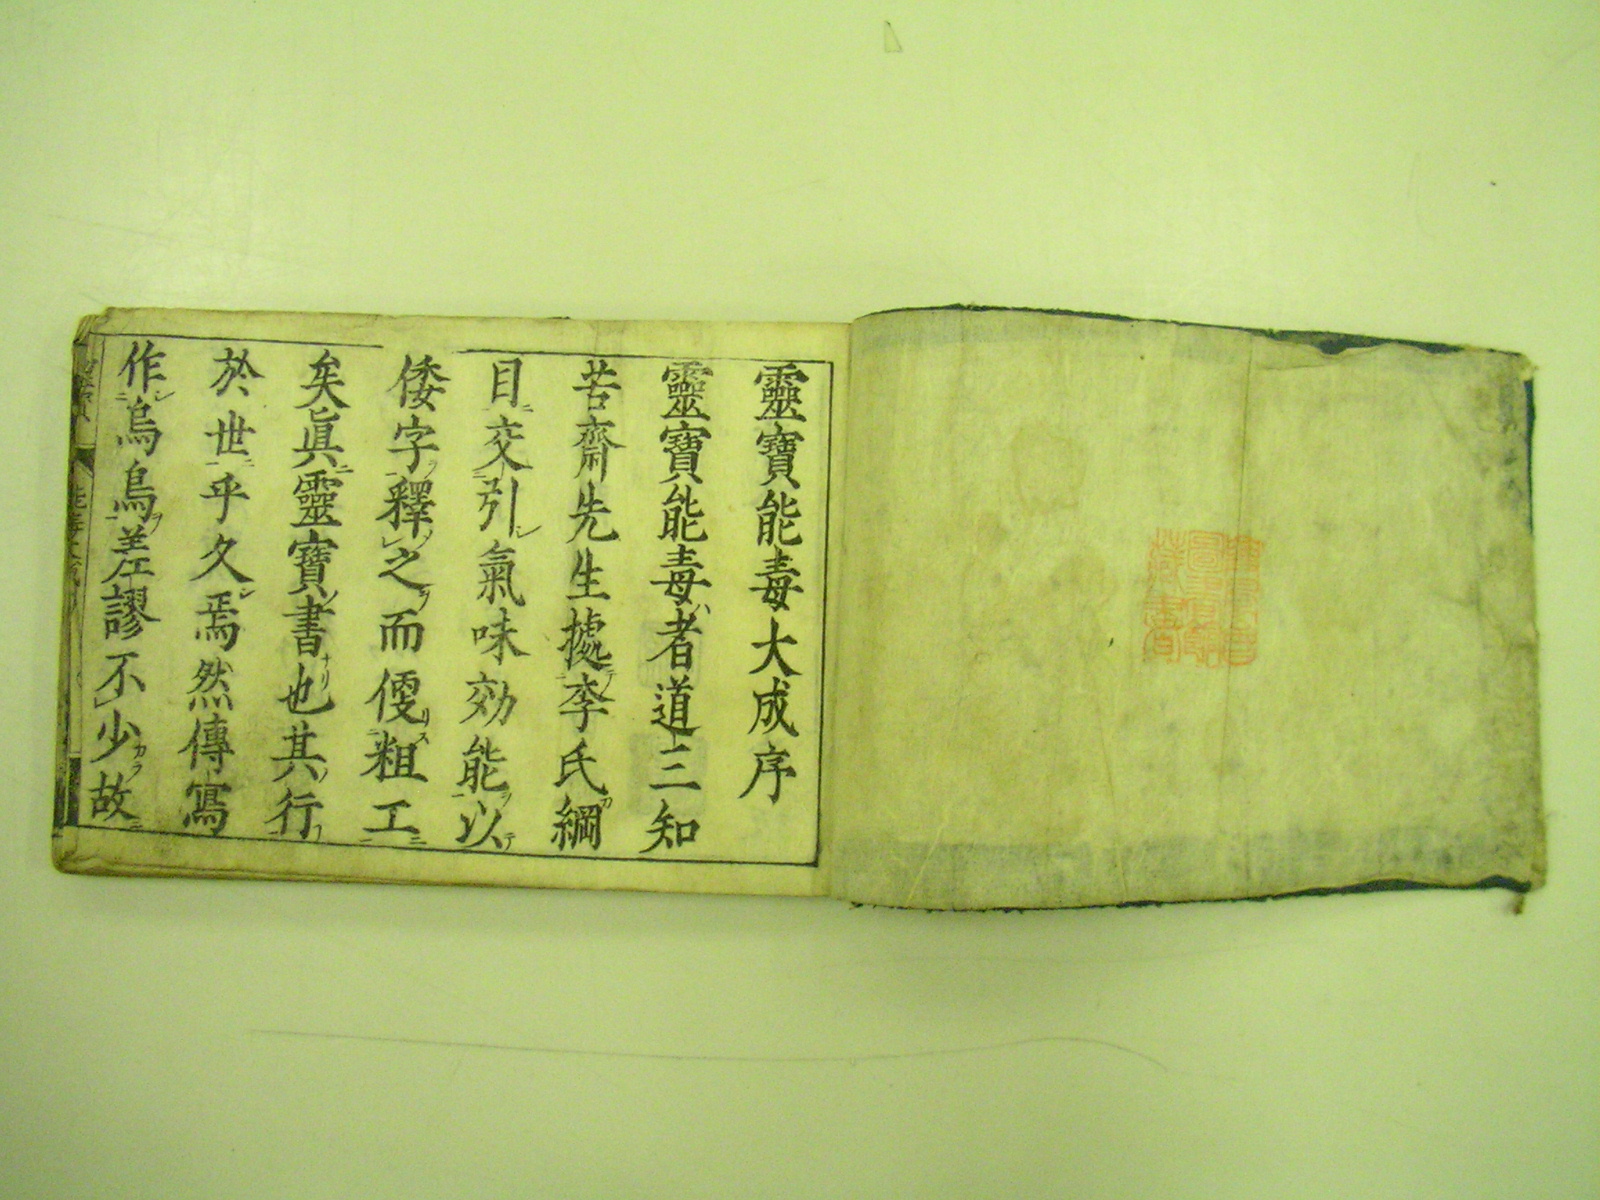 靈寶能毒大成序
靈寶能毒ハ者道三知
苦齋先生據李氏綱
目交引氣味効能以
倭字釋之而便粗工
矣眞靈寶書也其行
於世乎久焉然傳寫
作烏焉差謬不少故